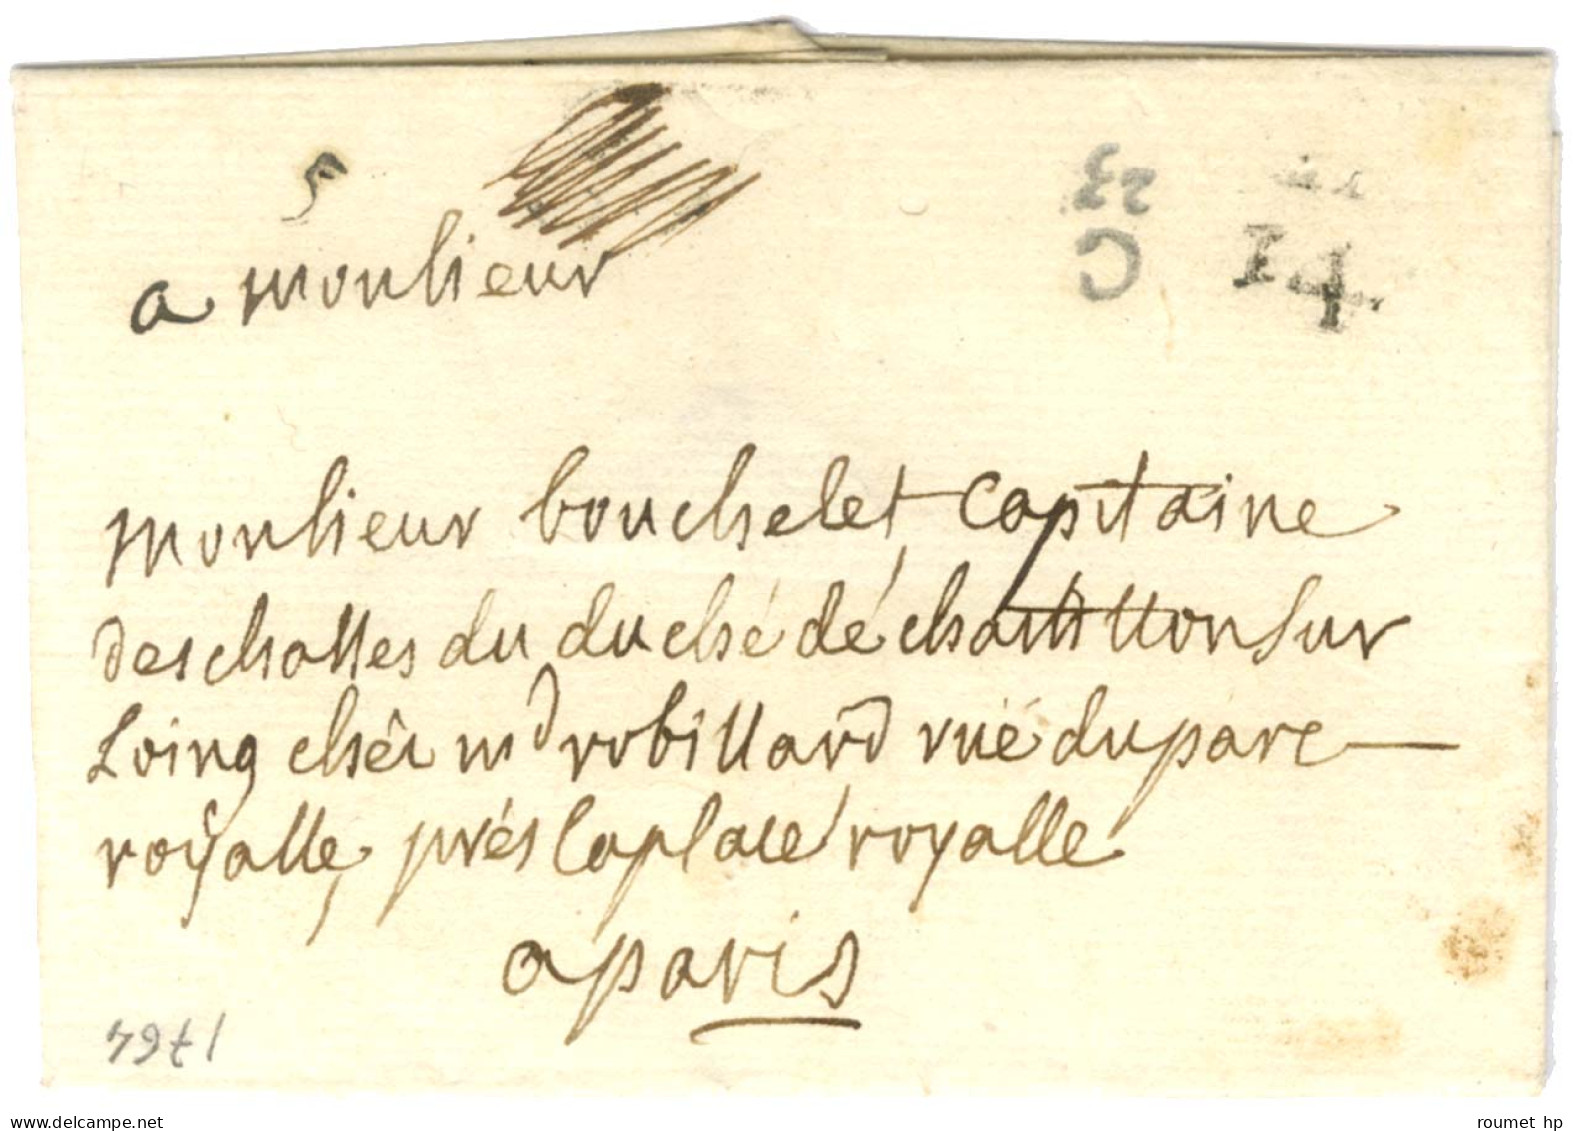 5
23
C
14
a monsieur
monsieur bouchelet capitaine
des chasses du duché dé chastillon sur
Loing chés md robillard rué du parc
royalle, prés la place royalle
a paris
1764
roumet hp
delcampe.net